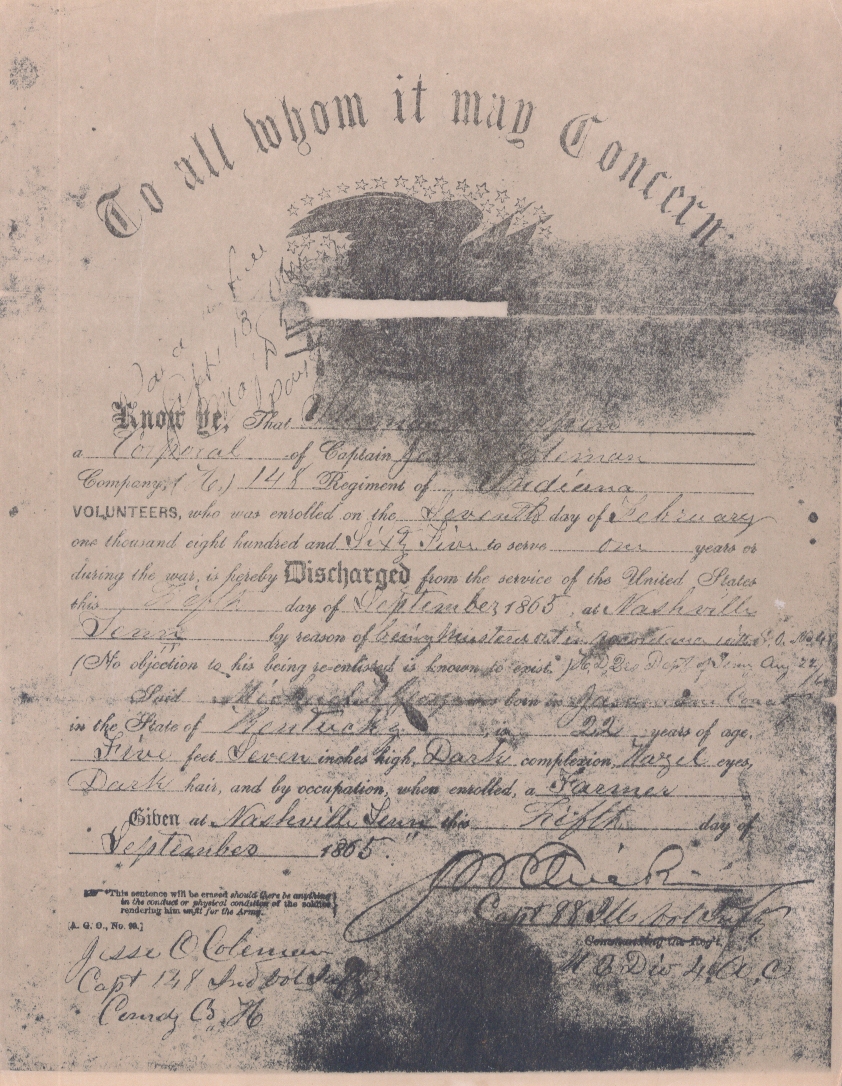 To all whom it may Concern
Paid in full
Sept 13
Know ye, That
a Corporal of Captain Coleman
Company, ( ) 148 Regiment of Indiana
VOLUNTEERS, who was enrolled on the Seventh day of February
one thousand eight hundred and Sixty Five to serve one years or
during the war, is hereby Discharged from the service of the United States
this Fifth day of September 1865, at Nashville
Tenn by reason of being Mustered out in accordance with G.O. No
(No objection to his being re-enlisted is known to exist.) Dept of Tenn Aug 22
Said was born in
in the State of Kentucky, is 22 years of age,
Five feet Seven inches high, Dark complexion, Hazel eyes,
Dark hair, and by occupation, when enrolled, a Farmer
Given at Nashville Tenn this Fifth day of
September 1865.
*This sentence will be erased should there be anything
in the conduct or physical condition of the soldier
rendering him unfit for the Army.
[A. G. O., No. 99.]
Capt 88 Ills Vol Infty
Commanding the Reg't.
Div 4 A. C
Jesse C Coleman
Capt 148 Ind Vol Inf
Comdg Co H